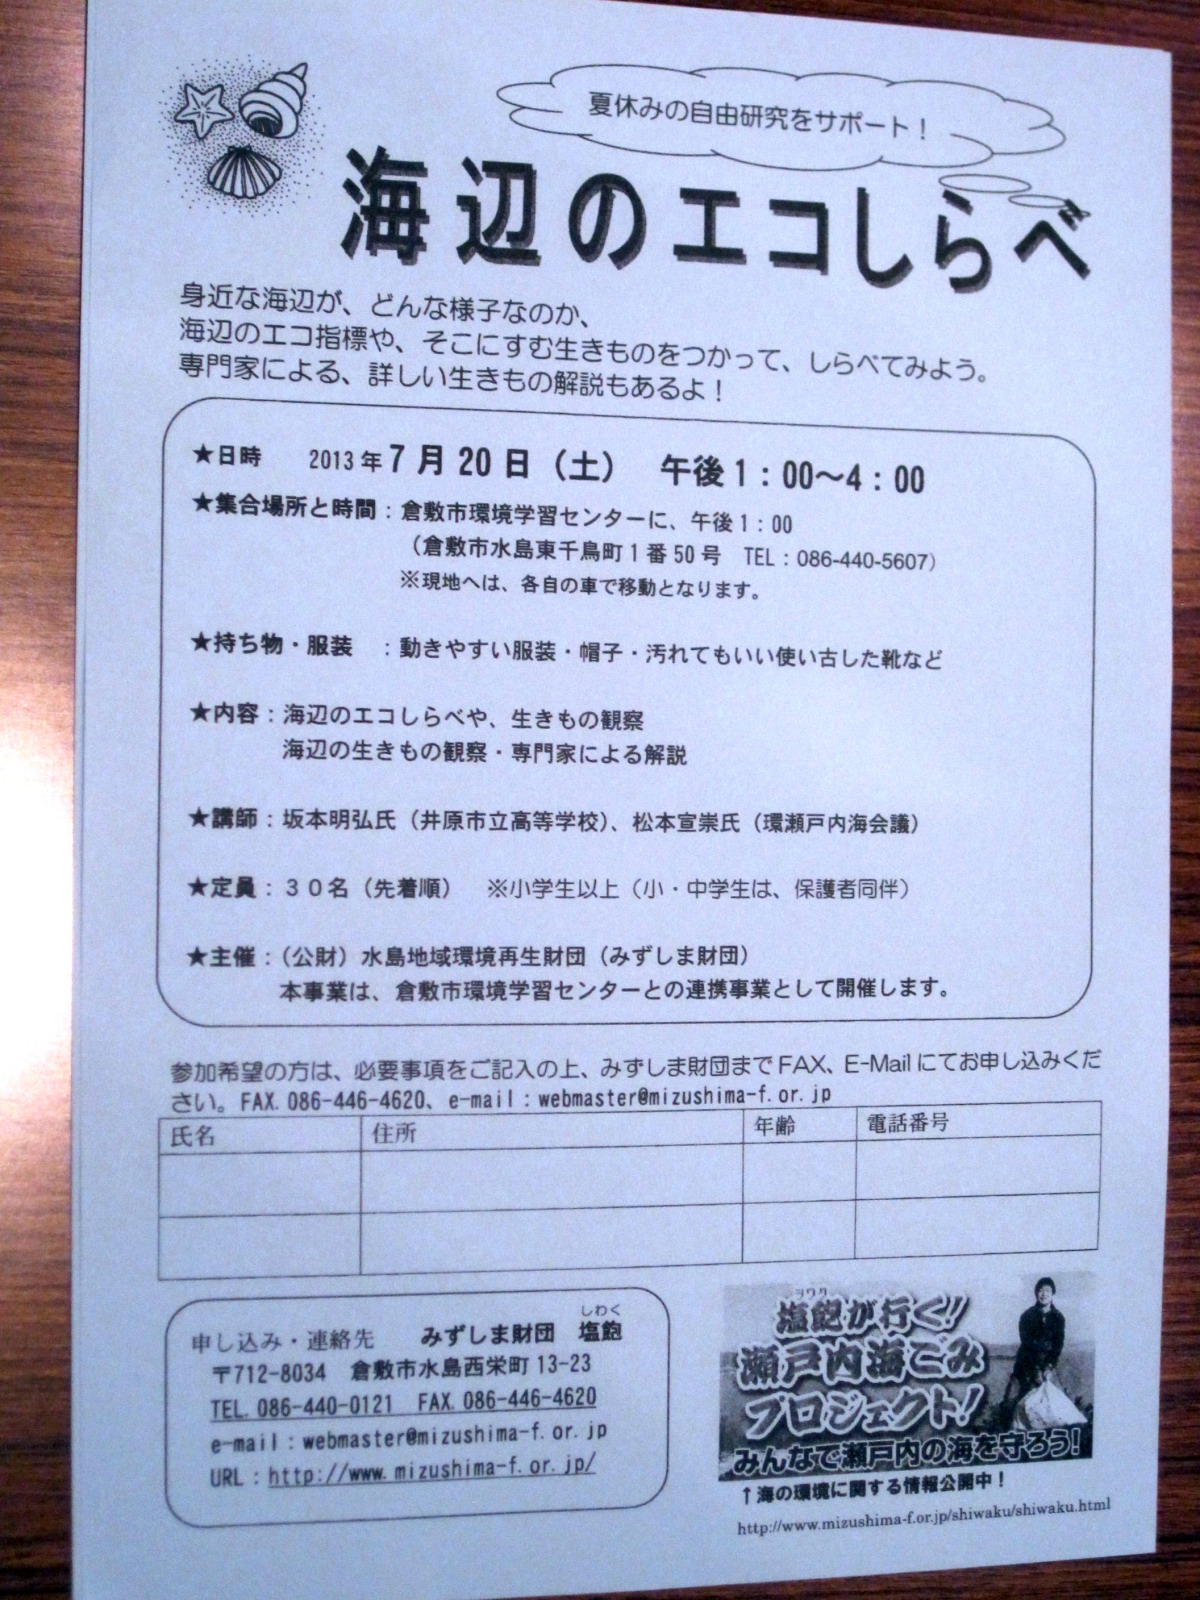 夏休みの自由研究をサポート!
海辺のエコしらべ
身近な海辺が、どんな様子なのか、
海辺のエコ指標や、そこにすむ生きものをつかって、しらべてみよう。
専門家による、詳しい生きもの解説もあるよ!
★日時 2013年7月20日(土) 午後1:00~4:00
★集合場所と時間:倉敷市環境学習センターに、午後1:00
(倉敷市水島東千鳥町1番50号 TEL:086-440-5607)
※現地へは、各自の車で移動となります。
★持ち物・服装 :動きやすい服装・帽子・汚れてもいい使い古した靴など
★内容:海辺のエコしらべや、生きもの観察
海辺の生きもの観察・専門家による解説
★講師:坂本明弘氏(井原市立高等学校)、松本宣崇氏(環瀬戸内海会議)
★定員:30名(先着順) ※小学生以上(小・中学生は、保護者同伴)
★主催:(公財)水島地域環境再生財団(みずしま財団)
本事業は、倉敷市環境学習センターとの連携事業として開催します。
参加希望の方は、必要事項をご記入の上、みずしま財団までFAX、E-Mailにてお申し込みくだ
さい。FAX.086-446-4620、e-mail:webmaster@mizushima-f.or.jp
氏名 住所 年齢 電話番号
しわく
申し込み・連絡先 みずしま財団 塩飽
〒712-8034 倉敷市水島西栄町13-23
TEL.086-440-0121 FAX.086-446-4620
e-mail:webmaster@mizushima-f.or.jp
URL:http://www.mizushima-f.or.jp/
シワク
塩飽が行く!!
瀬戸内海ごみ
プロジェクト!
みんなで瀬戸内の海を守ろう!
↑海の環境に関する情報公開中!
http://www.mizushima-f.or.jp/shiwaku/shiwaku.html